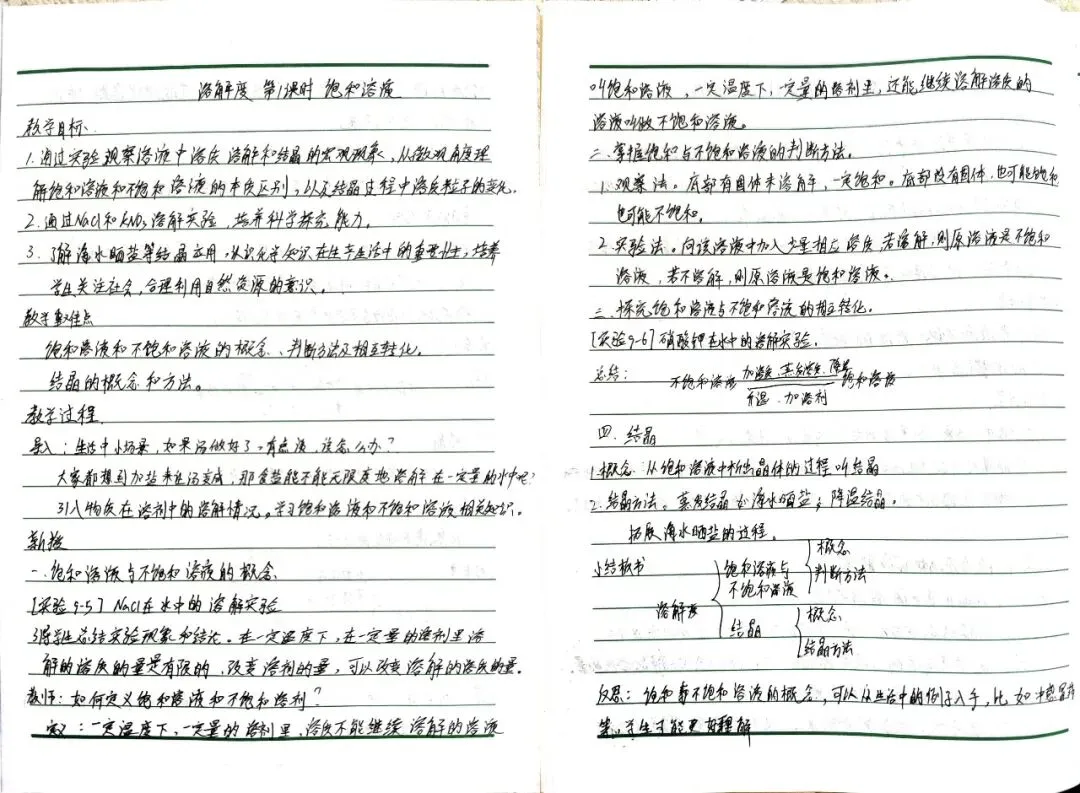 溶解度 第1课时 饱和溶液
教学目标:
1.通过实验观察溶液中溶质溶解和结晶的宏观现象,从微观角度理
解饱和溶液和不饱和溶液的本质区别,以及结晶过程中溶质粒子的变化.
2.通过NaCl和KNO₃溶解实验,培养科学探究能力。
3.了解海水晒盐等结晶应用.认识化学知识在生产生活中的重要性,培养
学生关注社会,合理利用自然资源的意识。
教学重难点
饱和溶液和不饱和溶液的概念、判断方法及相互转化.
结晶的概念和方法。
教学过程.
导入:生活中小场景,如果汤做好了,有点淡,该怎么办?
大家都想到加盐来让汤变咸,那食盐能不能无限度地溶解在一定量的水中呢?
引入物质在溶剂中的溶解情况。学习饱和溶液和不饱和溶液相关知识。
新授
一.饱和溶液与不饱和溶液的概念
[实验9-5] NaCl在水中的溶解实验
引导学生总结实验现象和结论。在一定温度下,在一定量的溶剂里溶
解的溶质的量是有限的,改变溶剂的量,可以改变溶解的溶质的量.
教师:如何定义饱和溶液和不饱和溶剂?
定义:一定温度下,一定量的溶剂里,溶质不能继续溶解的溶液
叫饱和溶液,一定温度下,一定量的溶剂里,还能继续溶解溶质的
溶液叫做不饱和溶液。
二.掌握饱和与不饱和溶液的判断方法.
1.观察法。底部有固体未溶解,一定饱和。底部没有固体,也可能饱和
也可能不饱和.
2.实验法。向该溶液中加入少量相应溶质,若溶解,则原溶液是不饱和
溶液,若不溶解,则原溶液是饱和溶液。
三.探究饱和溶液与不饱和溶液的相互转化.
[实验9-6]硝酸钾在水中的溶解实验.
总结: 不饱和溶液 加溶质、蒸发溶剂、降温 饱和溶液
升温、加溶剂
四.结晶
1.概念:从饱和溶液中析出晶体的过程叫结晶
2.结晶方法。蒸发结晶 如海水晒盐;降温结晶.
拓展海水晒盐的过程.
小结板书
溶解度
饱和溶液与
不饱和溶液
概念
判断方法
结晶
概念
结晶方法
反思:饱和与不饱和溶液的概念,可以从生活中的例子入手,比如
等.学生才能更好理解